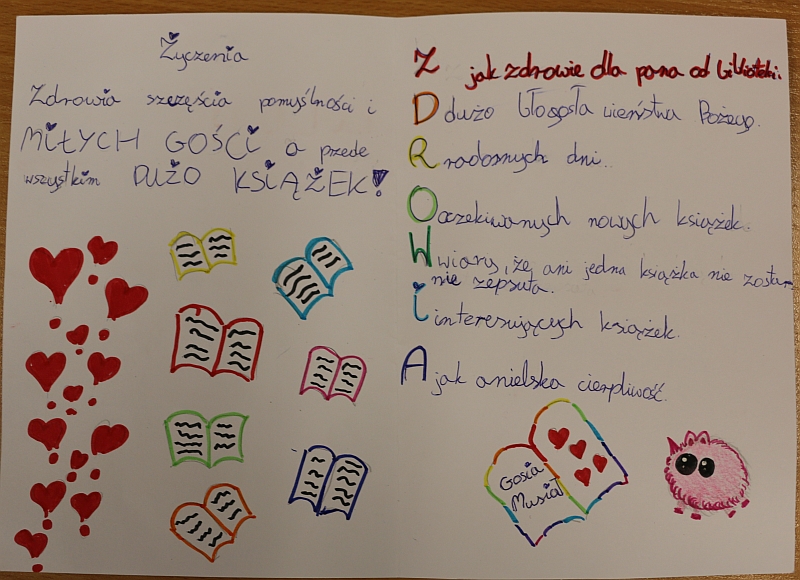 Życzenia
Zdrowia szczęścia pomyślności i
MIŁYCH GOŚCI a przede
wszystkim DUŻO KSIĄŻEK!
Z jak zdrowie dla pana od biblioteki.
D dużo błogosła wieństwa Bożego.
R radosnych dni.
O oczekiwanych nowych książek.
W wiary, żę ani jedna książka nie zosta
nie zepsuta.
i interesujących książek.
A jak anielska cierpliwość.
Gosia
Musiał